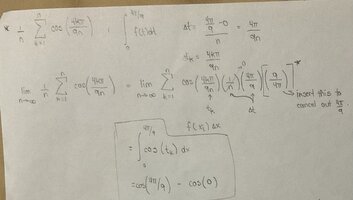 * 1/n Σ_{k=1}^{n} cos(4kπ/9n) ; ∫_0^{4π/9} f(t)dt Δt = (4π/9 - 0)/n = 4π/9n
t_k = 4kπ/9n
lim_{n→∞} 1/n Σ_{k=1}^{n} cos(4kπ/9n) = lim_{n→∞} Σ_{k=1}^{n} cos(4kπ/9n)(1/n)(4π/9)[9/4π]*
t_k Δt insert this to
cancel out 4π/9
f(x_i) Δx
= ∫_0^{4π/9} cos(t_k) dx
= cos(4π/9) - cos(0)